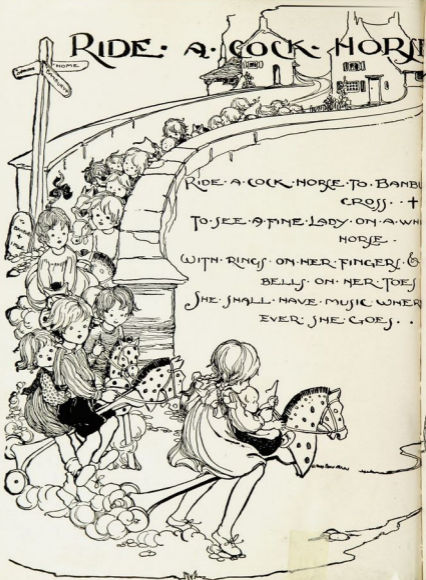 RIDE · A · COCK · HORSE
HOME
RIDE · A · COCK · HORSE · TO · BANBU
CROSS · · +
TO · SEE · A · FINE · LADY · ON · A · WHI
HORSE ·
WITH · RINGS · ON · HER · FINGERS · &
BELLS · ON · HER · TOES
SHE · SHALL · HAVE · MUSIC · WHER
EVER · SHE · GOES · ·